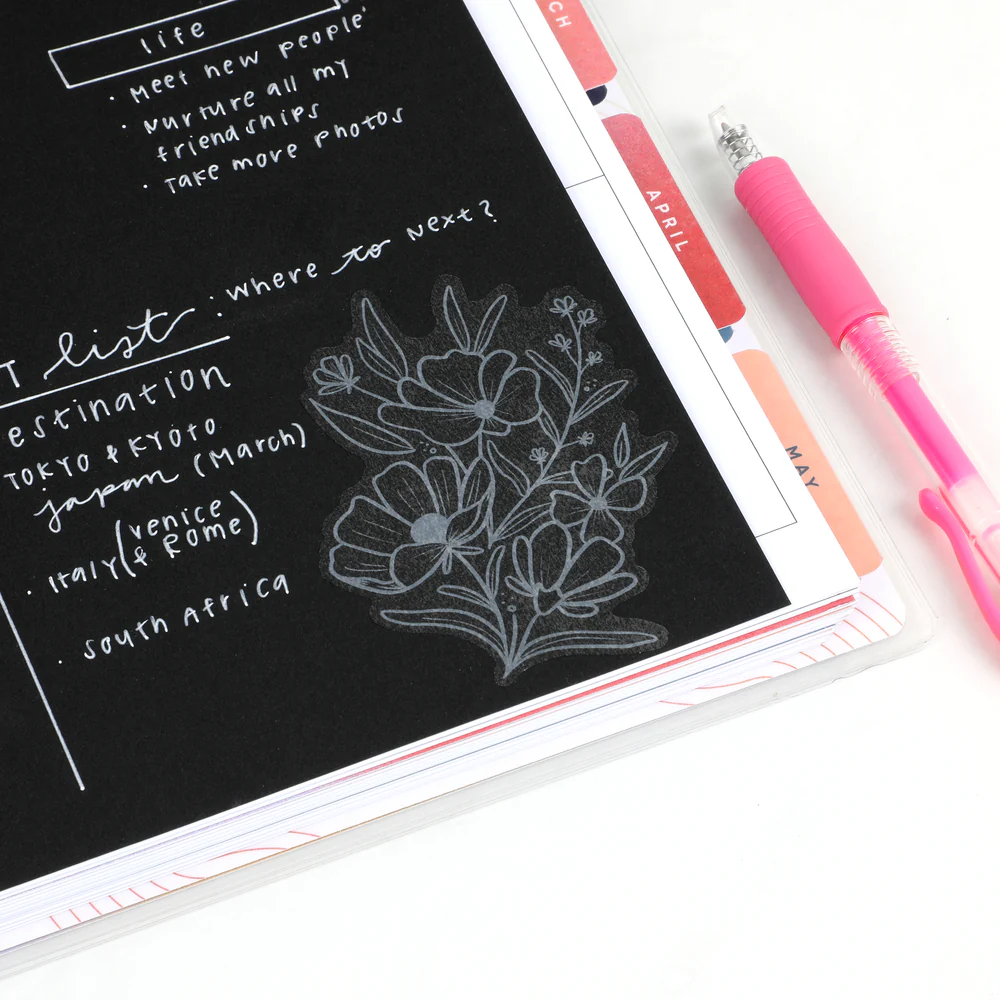 life
• Meet new people
• Nurture all my
friendships
• Take more photos
T list: where to next?
estination
TOKYO & KYOTO
japan (March)
• Italy (venice
& Rome)
• South Africa
CH
APRIL
MAY